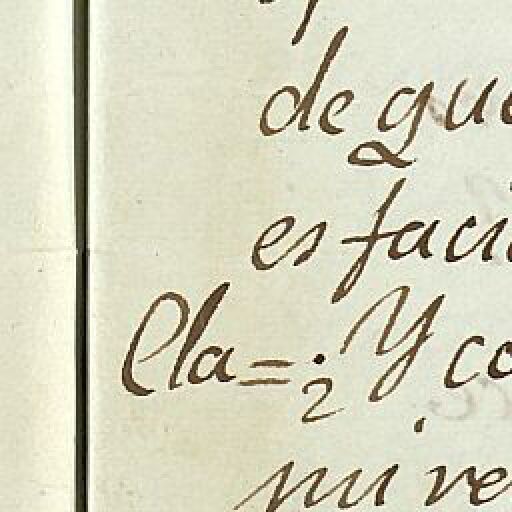 de gue
es faci
Cla=2. Y co
mi ve